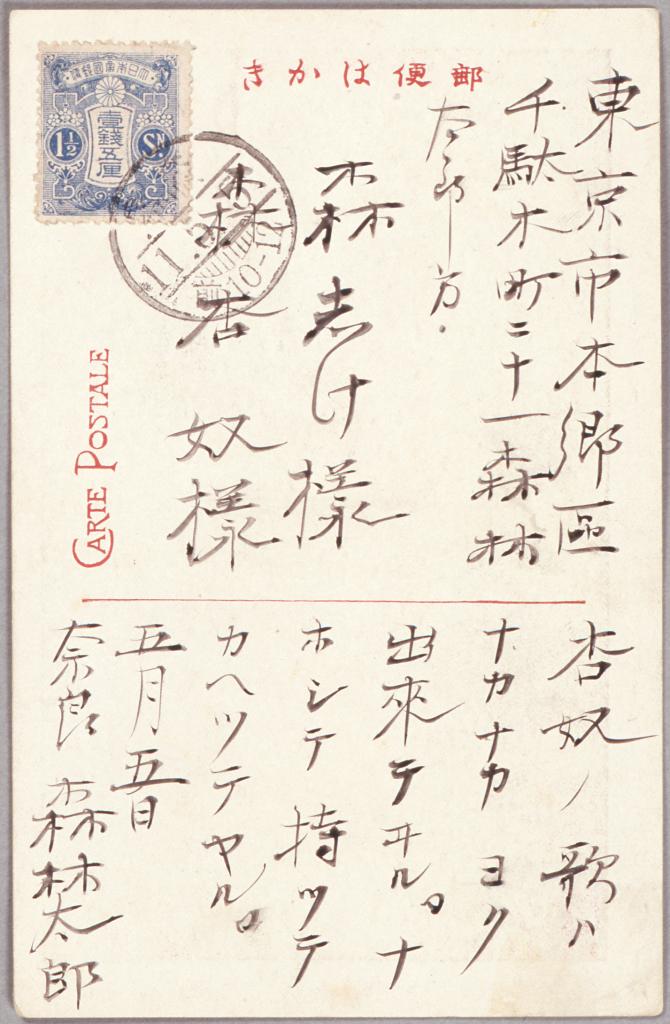 郵便はかき
東京市本郷區
千駄木町二十一森林
太郎方.
森志け様
森杏奴様
大日本帝國郵便
壹錢五厘
1½ Sn.
11.
前10-12
CARTE POSTALE
杏奴ノ歌ハ
ナカナカヨク
出來テヰル。ナ
ホシテ持ツテ
カヘツテヤル。
五月五日
奈良 森林太郎